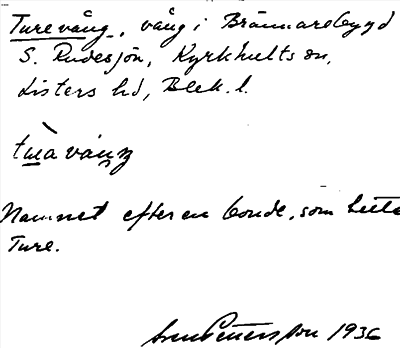 Turevång, vång i Brännarebygd
S. Rudesjön, Kyrkhults sn,
Listers hd, Blek. l.
Namnet efter en bonde, som hette
Ture.
Sven Pettersson 1936